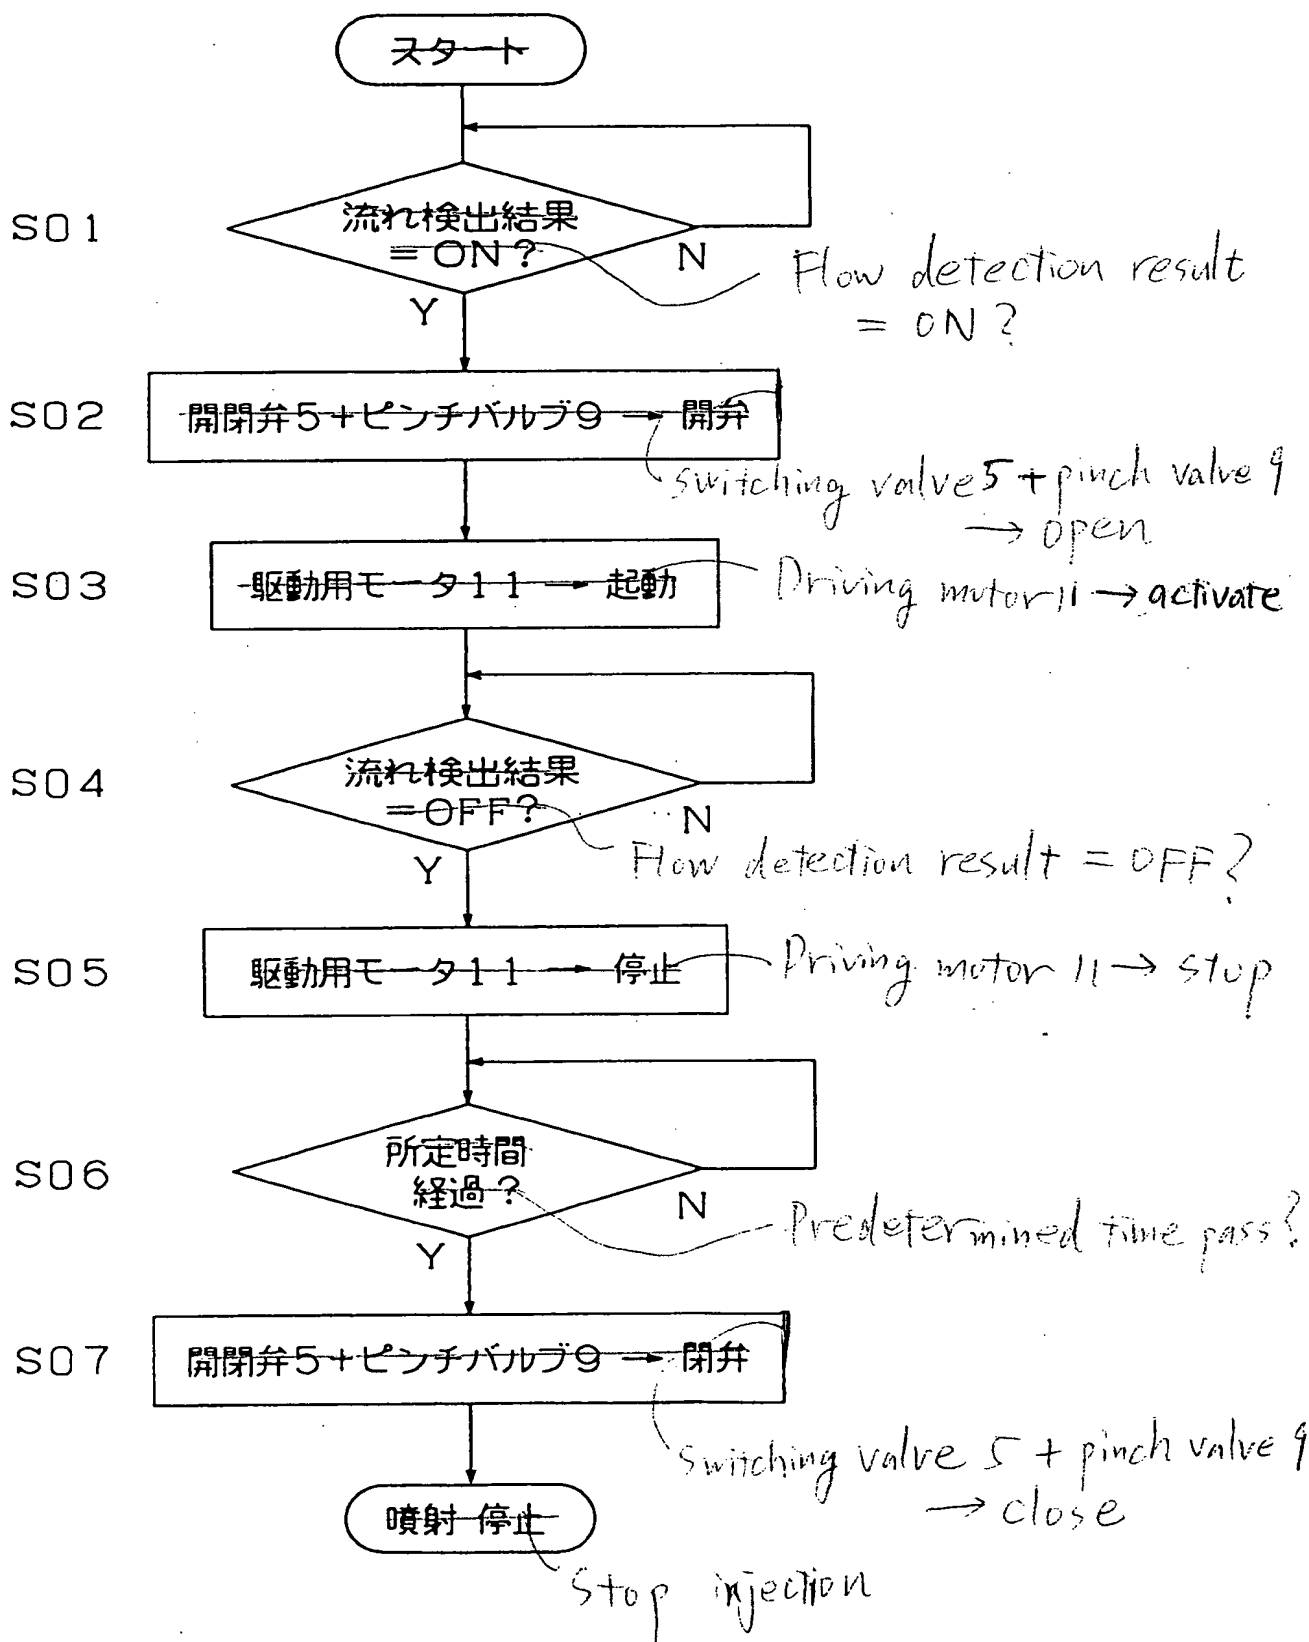 スタート
S01
流れ検出結果
=ON?
N
Flow detection result
= ON?
Y
S02
開閉弁5+ピンチバルブ9 → 開弁
switching valve 5 + pinch valve 9
→ open
S03
駆動用モータ11 → 起動
Driving motor 11 → activate
S04
流れ検出結果
=OFF?
N
Flow detection result = OFF?
Y
S05
駆動用モータ11 → 停止
Driving motor 11 → stop
S06
所定時間
経過?
N
Predetermined time pass?
Y
S07
開閉弁5+ピンチバルブ9 → 閉弁
Switching valve 5 + pinch valve 9
→ close
噴射 停止
Stop injection